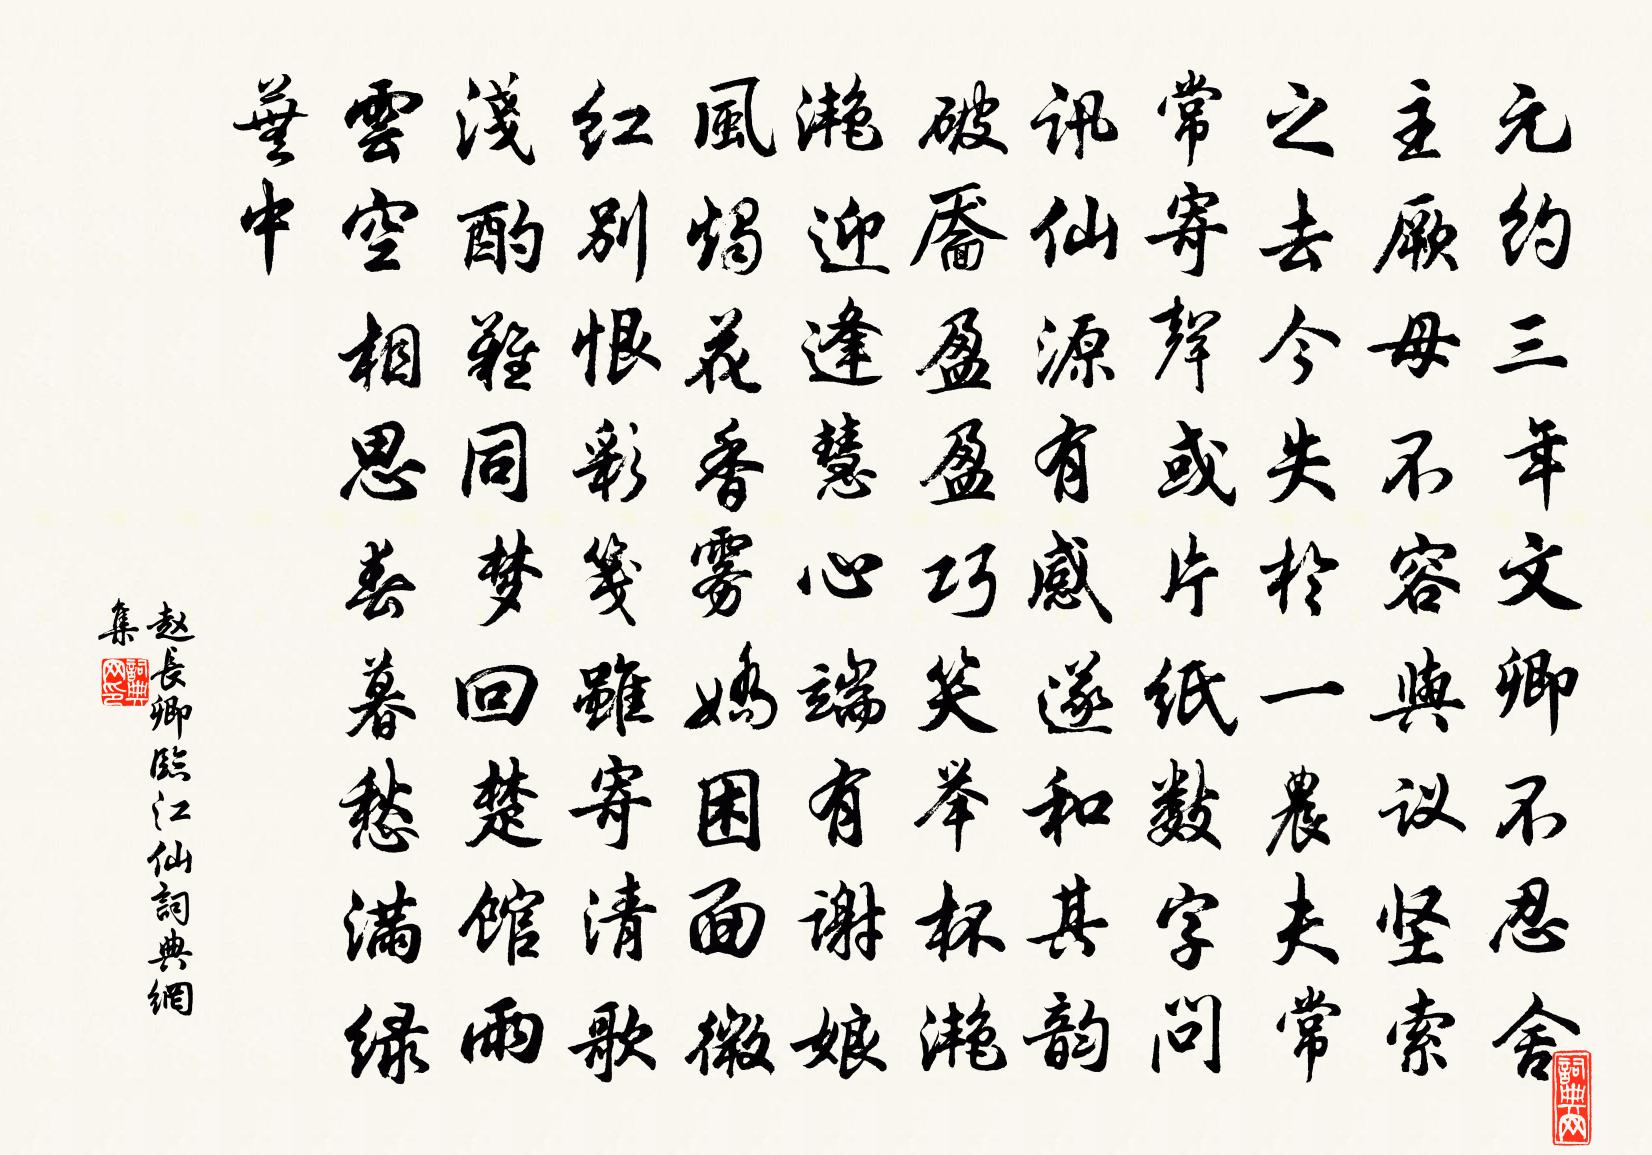 元约三年文卿不忍舍
主厥母不容與议坚索
之去今失於一農夫常
常寄聲或片纸数字问
讯仙源有感遂和其韵
破靥盈盈巧笑举杯滟
滟迎逢慧心端有谢娘
風烛花香雾娇困面微
红别恨彩笺雖寄清歌
淺酌难同梦回楚馆雨
雲空相思春暮愁满绿
蕪中
赵長卿臨江仙詞典網
集
詞典网
詞典网印